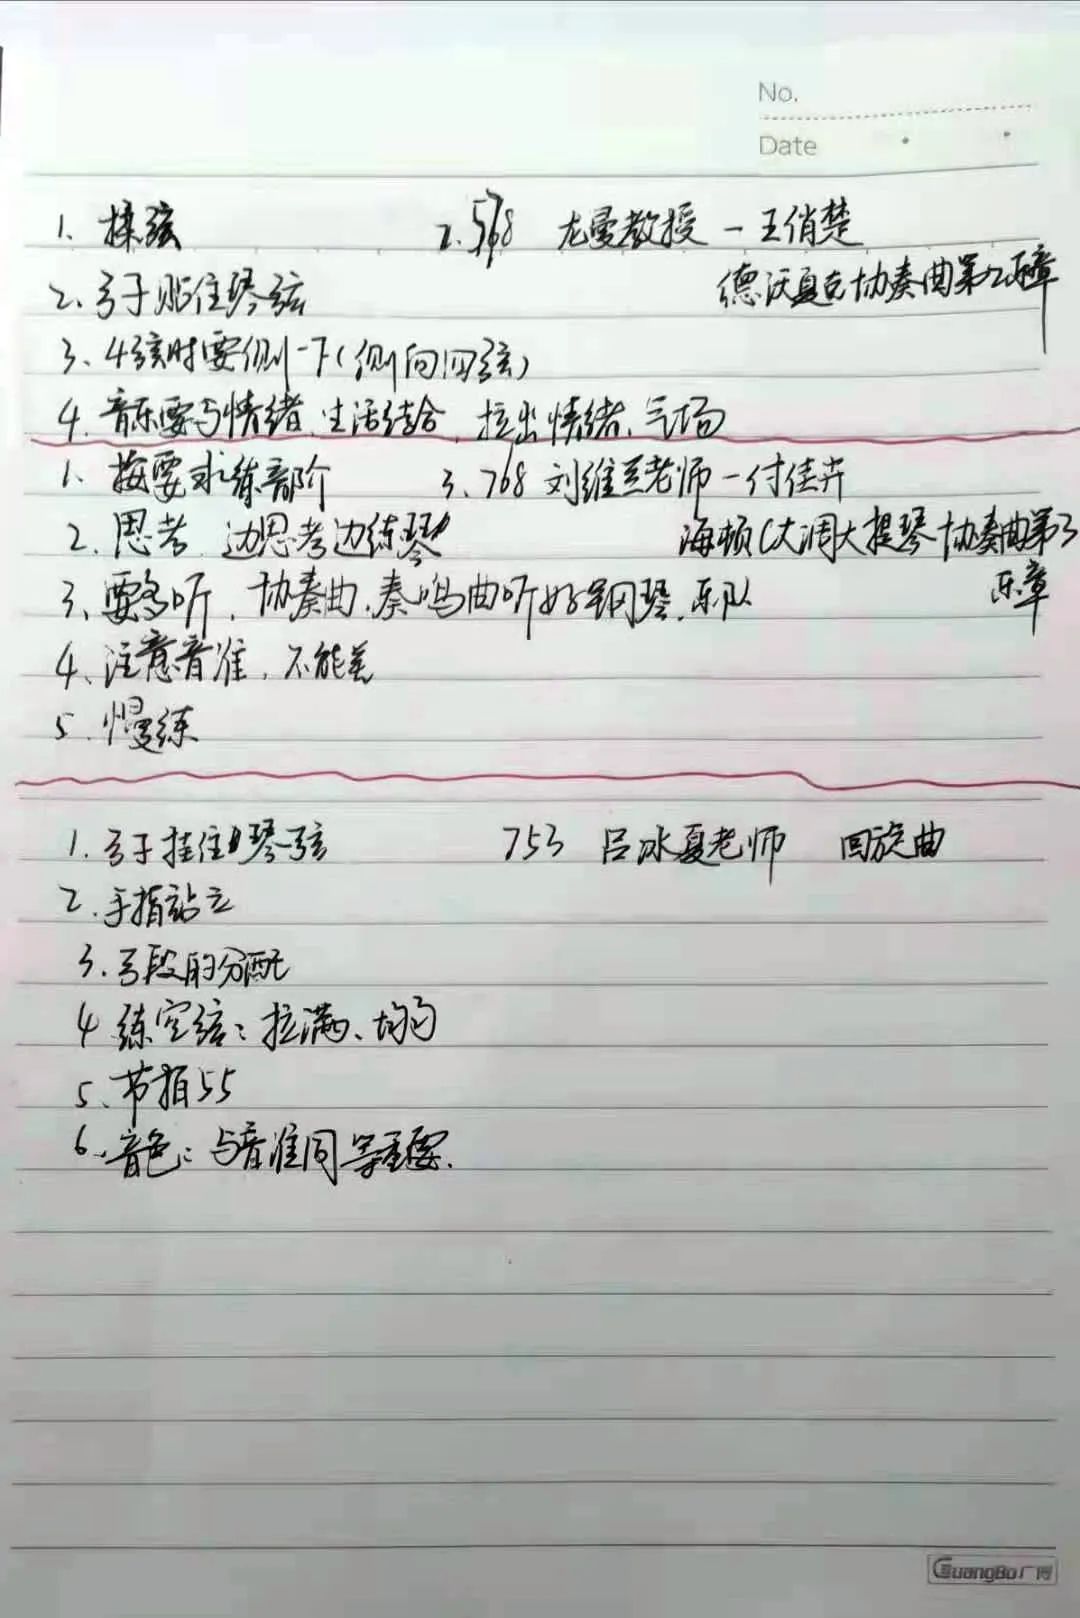 No.
Date
1. 揉弦 2. 568 龙曼教授-王俏楚
2. 弓子贴住琴弦 德沃夏克协奏曲第2乐章
3、4弦时要侧一下(侧向四弦)
4. 音乐要与情绪、生活结合、拉出情绪、气场
1、按要求练音阶 3、768 刘维 老师-付佳卉
2. 思考、边思考边练琴 海顿C大调大提琴协奏曲第3
3、要多听、协奏曲、奏鸣曲听好钢琴、乐队 乐章
4、注意音准、不能差
5. 慢练
1. 弓子挂住琴弦 753 吕冰夏老师 回旋曲
2. 手指站立
3. 弓段的分配
4 练空弦: 拉满、均匀
5、节拍55
6、音色: 与音准同等重要.
GuangBo广博